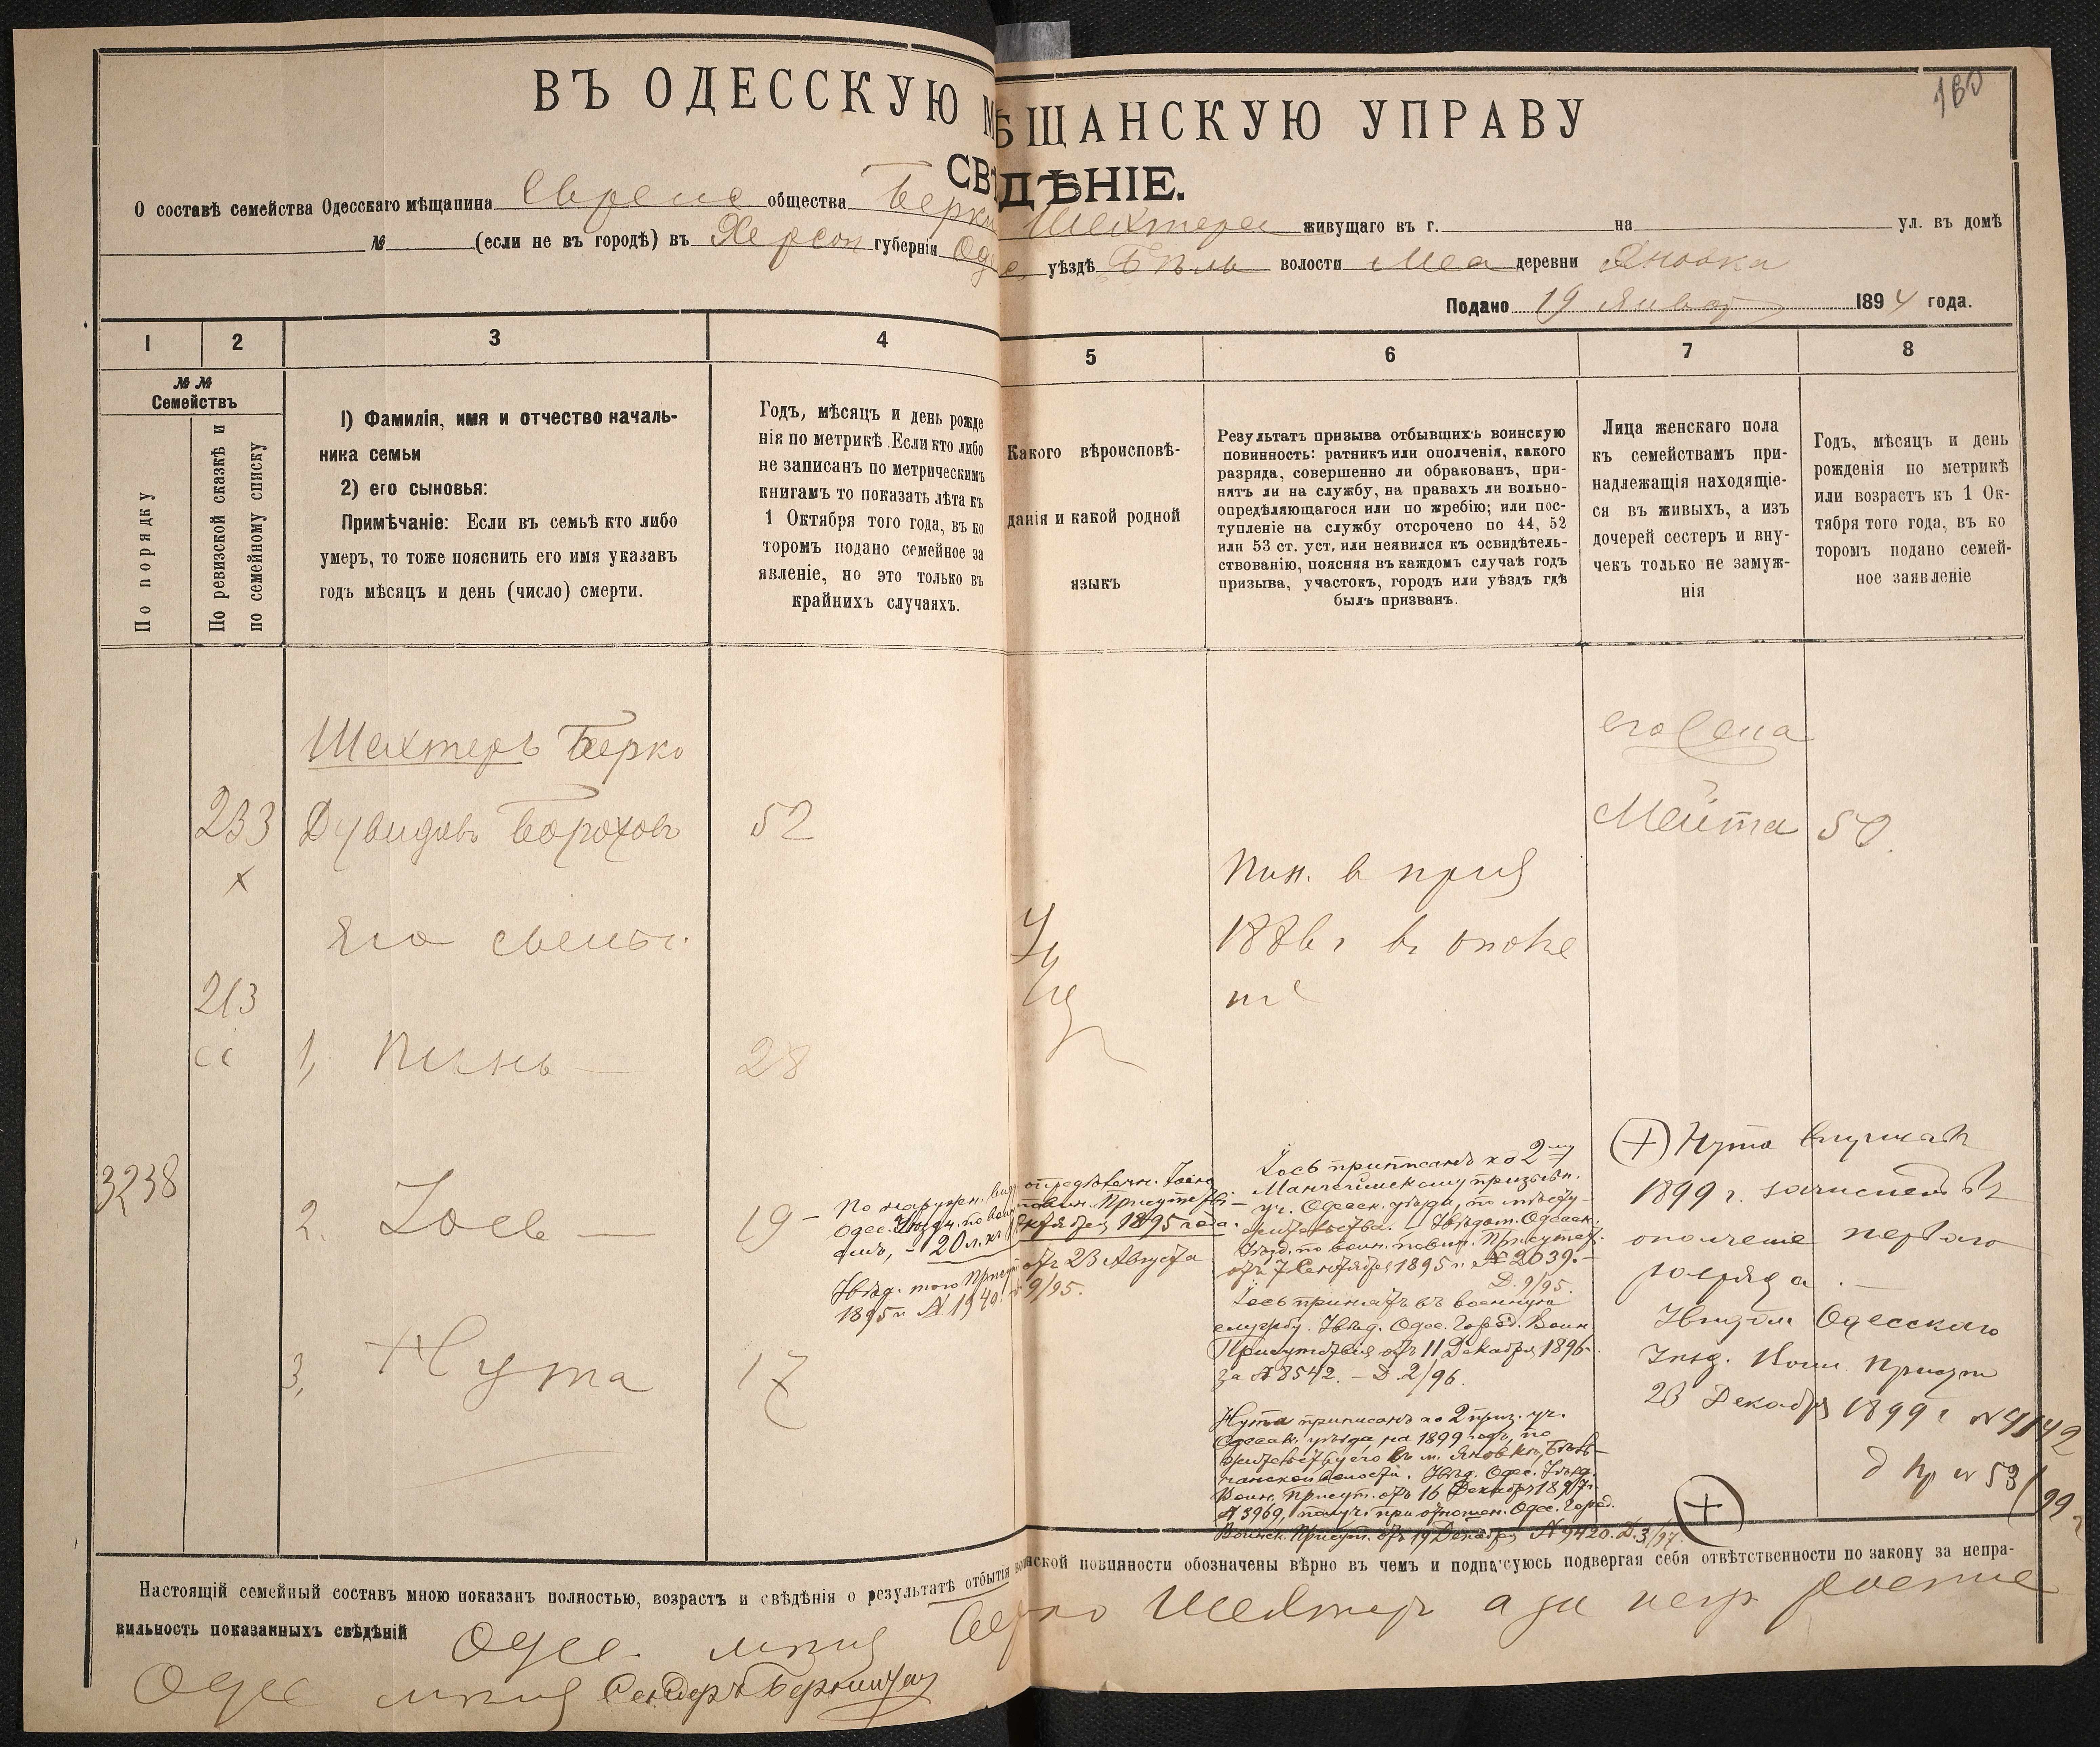 180
ВЪ ОДЕССКУЮ МѢЩАНСКУЮ УПРАВУ
СВѢДѢНІЕ.
О составѣ семейства Одесскаго мѣщанина Евреис общества Берки Шехтера живущаго въ г. на ул. въ домѣ
№ (если не въ городѣ) въ Херсон губерніи Одес уѣздѣ Бѣль волости Мес деревни Яновка
Подано 19 Январ 1894 года.
1 2 3 4 5 6 7 8
№ №
Семействъ
По порядку
По ревизской сказкѣ и
по семейному списку
1) Фамилія, имя и отчество началь-
ника семьи
2) его сыновья:
Примѣчаніе: Если въ семьѣ кто либо
умеръ, то тоже пояснить его имя указавъ
годъ мѣсяцъ и день (число) смерти.
Годъ, мѣсяцъ и день рожде
нія по метрикѣ. Если кто либо
не записанъ по метрическимъ
книгамъ то показать лѣта къ
1 Октября того года, въ ко
торомъ подано семейное за
явленіе, но это только въ
крайнихъ случаяхъ.
Какого вѣроисповѣ-
данія и какой родной
языкъ
Результатъ призыва отбывшихъ воинскую
повинность: ратникъ или ополченія, какого
разряда, совершенно ли обракованъ, при-
нятъ ли на службу, на правахъ ли вольно-
опредѣляющагося или по жребію; или пос-
тупленіе на службу отсрочено по 44, 52
или 53 ст. уст. или неявился къ освидѣтель-
ствованію, поясняя въ каждомъ случаѣ годъ
призыва, участокъ, городъ или уѣздъ гдѣ
былъ призванъ.
Лица женскаго пола
къ семействамъ при-
надлежащія находящіе-
ся въ живыхъ, а изъ
дочерей сестеръ и вну-
чекъ только не замуж-
нія
Годъ, мѣсяцъ и день
рожденія по метрикѣ
или возрастъ къ 1 Ок-
тября того года, въ ко
торомъ подано семей-
ное заявленіе
Шехтеръ Берко
его Жена
233 Дувидовъ Борохов 52 Мейта 50.
х
Пин. в приз
Его сыновья
1886 г в ополче
213
1, Пинь — 28
3238
2. Іось — 19 —
По наружн. виду опредѣлен. Одес. Уѣздн. по воин. повин. Присутстві-
емъ, — 20 л. къ 1 Октября 1895 года.
Увѣд. того Присут отъ 23 Августа
1895 г. № 1940. 9/95.
Іось приписанъ ко 2му
Мангеймскому призывн.
уч. Одесск. уѣзда, по мѣсту
жительства. Увѣдом. Одесск.
Уѣзд. по воин. повин. Присутст.
отъ 7 Сентября 1895 г. № 2039. —
Д. 9/95.
Іось принятъ въ военную
службу. Увѣд. Одес. Город. Воин
Присутствія отъ 11 Декабря 1896 г.
за № 8542. — Д. 2/96.
Нута приписанъ ко 2 приз. уч.
Одесск. уѣзда на 1899 годъ, по
жительству его въ м. Яновкѣ, Бѣль-
чанской волости. Увѣд. Одес. Уѣзд.
Воин. Присут. отъ 16 Декабря 1897 г.
№ 3969, получ. при отношен. Одес. Город.
Воинск. Присут. отъ 19 Декабря № 9420. Д. 3/97.
3, Нута 17
+ Нута
1899 г. зачислен въ
ополчение перваго
разряда. —
Одесскаго
Уѣзд. Воин. Присут
23 Декабря 1899 г №4142
д пр № 53/99 г
+
Настоящій семейный составъ мною показанъ полностью, возрастъ и свѣдѣнія о результатѣ отбытія воинской повинности обозначены вѣрно въ чемъ и подписуюсь подвергая себя отвѣтственности по закону за непра-
вильность показанныхъ свѣдѣній
Одес. мѣщ Берко Шехтер а за негр росписа
Одес мѣщ